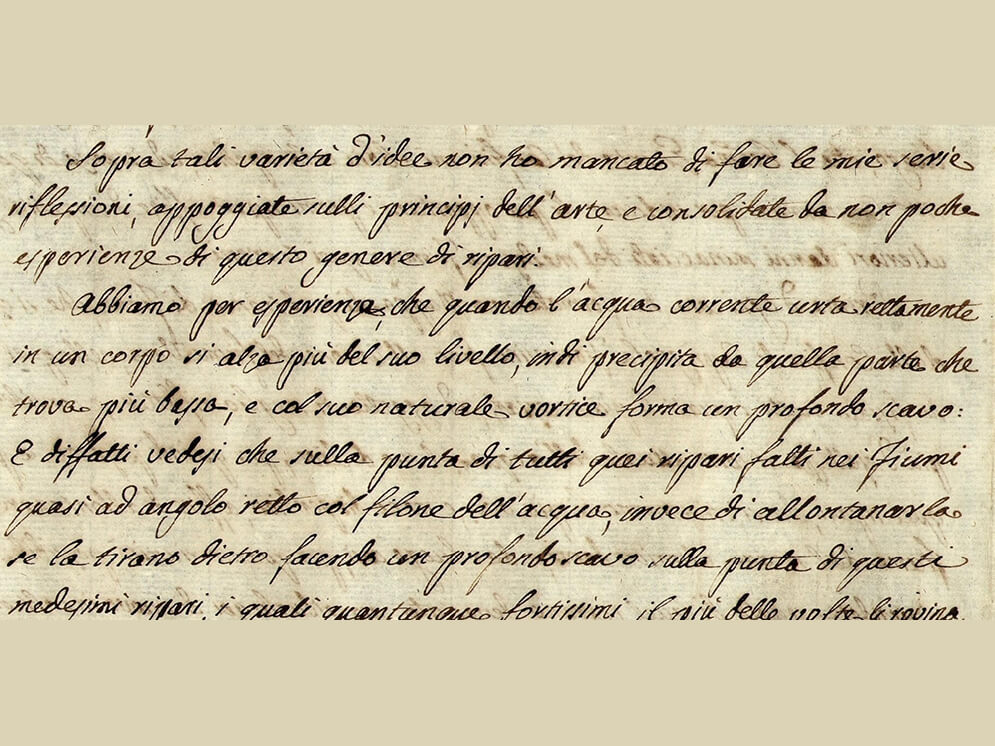 Sopra tali varietà d'idee non ho mancato di fare le mie serie
riflessioni, appoggiate sulli principj dell'arte, e consolidate da non poche
esperienze di questo genere di ripari.
Abbiamo per esperienza, che quando l'acqua corrente urta rettamente
in un corpo si alza più del suo livello, indi precipita da quella parte che
trova più bassa, e col suo naturale vortice forma un profondo scavo:
E diffatti vedesi che sulla punta di tutti quei ripari fatti nei Fiumi
quasi ad angolo retto col filone dell'acqua, invece di allontanarla
se la tirano dietro facendo un profondo scavo sulla punta di questi
medesimi ripari, i quali quantunque fortissimi il più delle volte li rovina